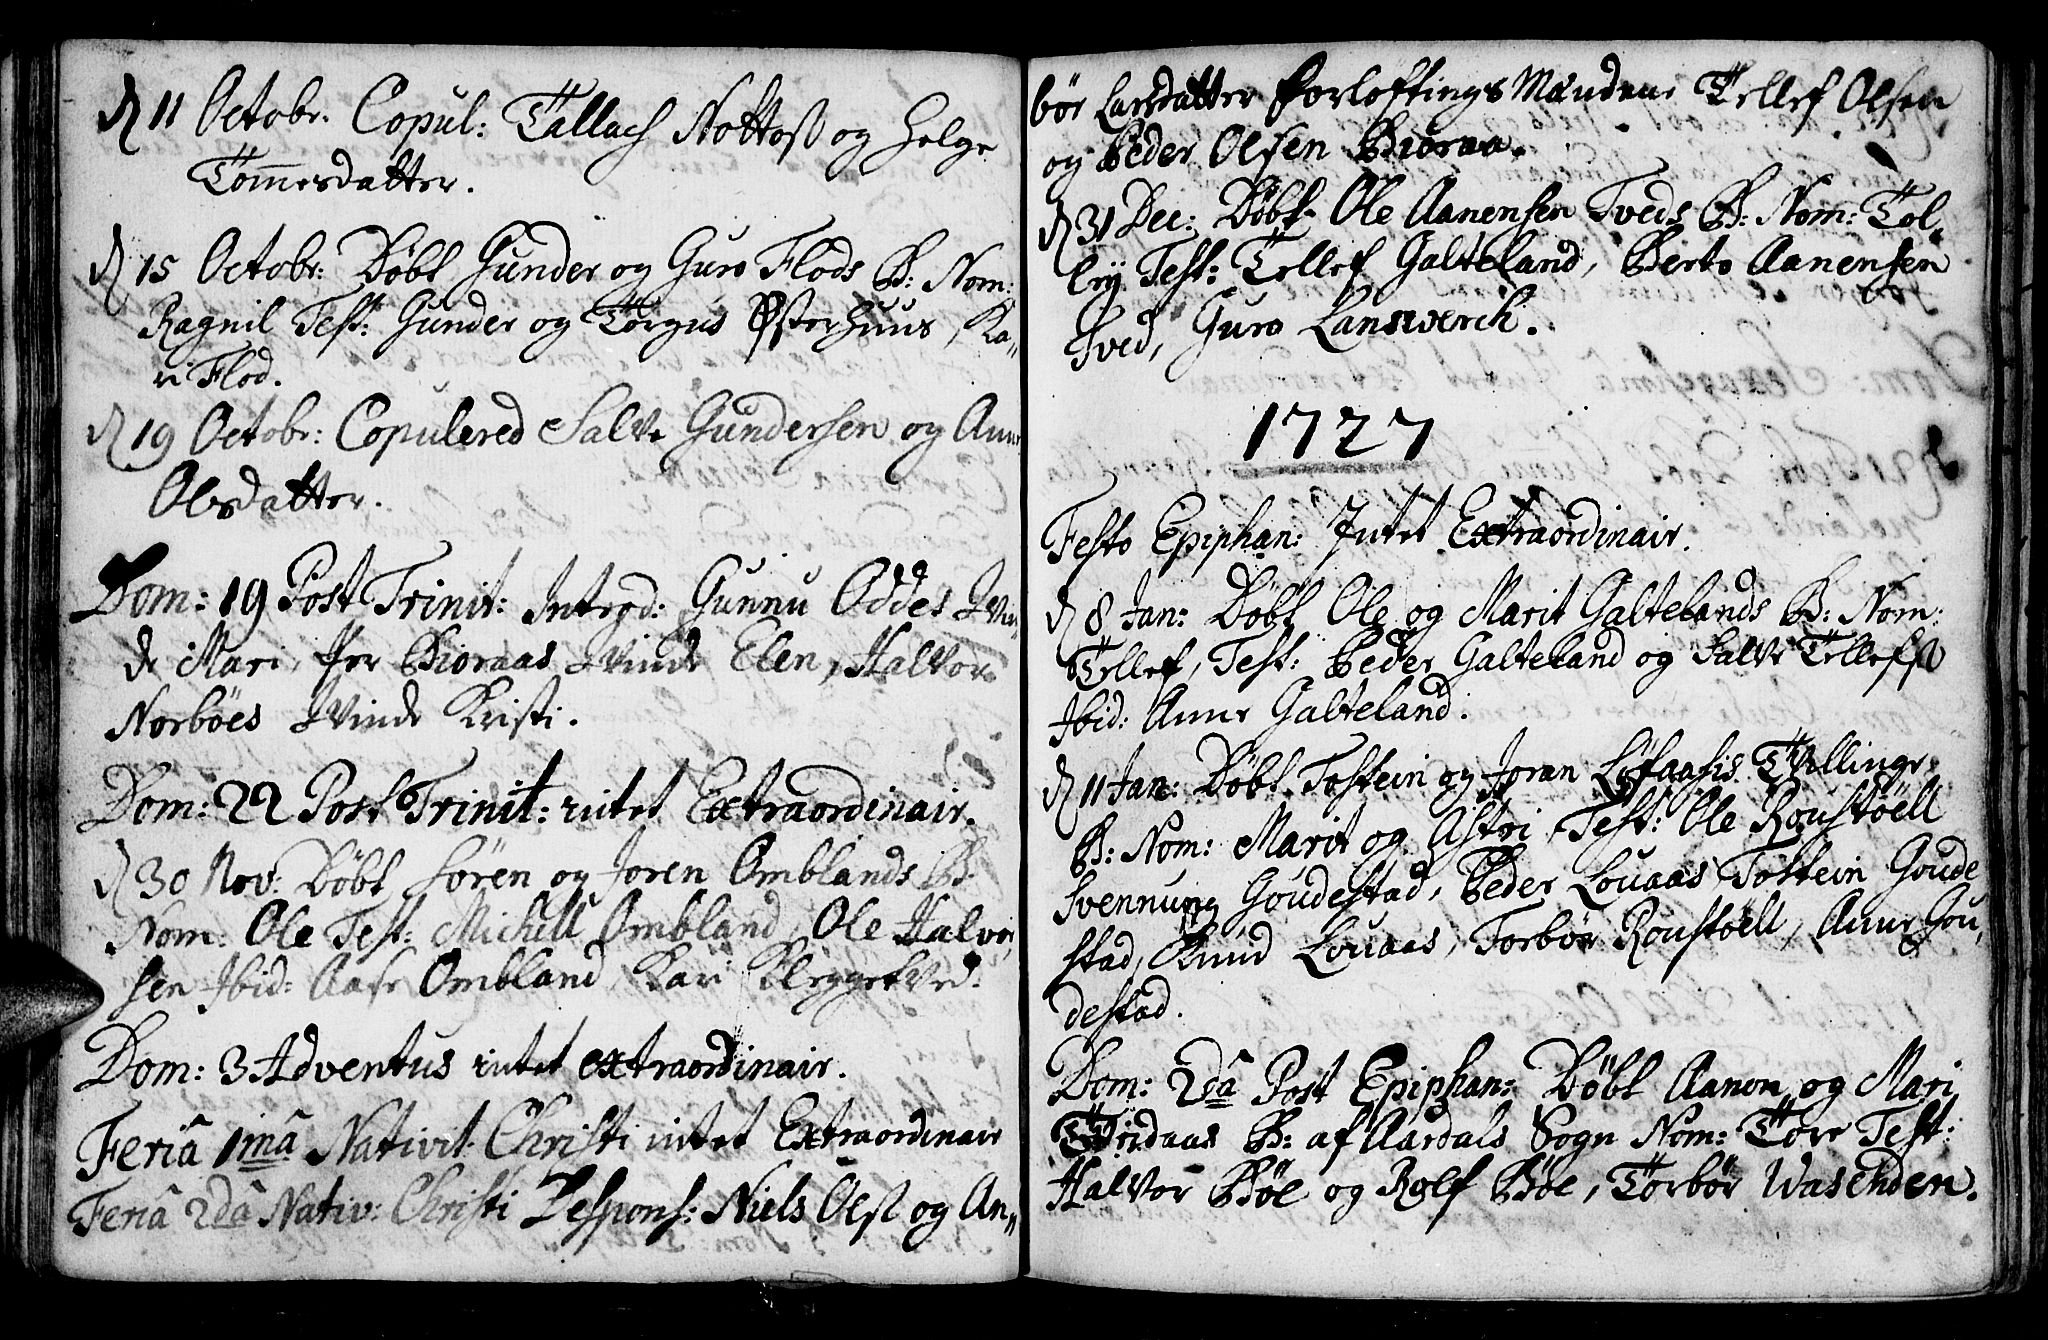 d 11 Octobr. Copul: Tallach Nottoß og Helge
Tom̄esdatter.
d 15 Octobr: Döbt Gunder og Guro Flods B: Nom:
Ragnil Test: Gunder og Torgus Østerhuus, Ka„
ri Flod.
d 19 Octobr: Copulered Salve Gundersen og Anne
Olsdatter.
Dom: 19 Post Trinit: Introd: Gunnu Oddes Qvin„
de Mari, Per Bioraas Qvinde Elen, Halvor
Norböes Qvinde Kristi.
Dom: 22 Post Trinit: intet Extraordinair.
d 30 Nov: Döbt Sören og Joren Omblands B.
Nom: Ole Test: Michell Ombland, Ole Halvor„
sen Ibid: Aase Ombland, Kari Kleggetved.
Dom: 3 Adventus intet extraordinair.
Feriâ 1mâ Nativit: Christi intet Extraordinair
Feriâ 2dâ Nativ: Christi Desspons: Niels Olsß og An„
bör Larsdatter Forloftings Mændene Tellef Olsen
og Peder Olsen Bioraa.
d 31 Dec: Döbt Ole Aanensen Tveds B: Nom: Tol„
lej Test: Tellef Galteland, Berte Aanensen
Tved, Guro Lanswerch.
1727
Festo Epiphan: Intet Extraordinair.
d 8 Jan: Döbt Ole og Marit Galtelands B: Nom:
Tellef, Test: Peder Galteland og Salve Tellefsß
Ibid: Anne Galteland.
d 11 Jan: Döbt Tostein og Joran Løfaasis Tvillinge
B: Nom: Marit og Astri, Test: Ole Roustöell
Svennung Goudestad, Peder Louaas, Tostein Goude„
stad, Knud Louaas, Torbör Roustöell, Anne Gou„
destad.
Dom: 2dâ Post Epiphan: Döbt Aanon og Mari
Tvidaas B: af Aardals Sogn Nom: Tore Test:
Halvor Böe og Rolf Böe, Torbör Wasenden.